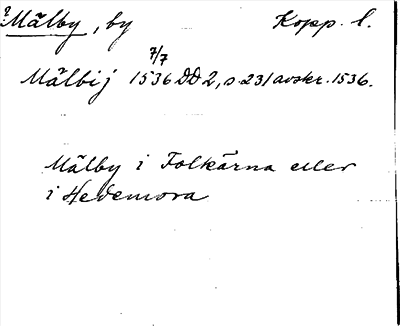 ?Mälby, by Kopp. l.
7/7
Mälbij 1536 DD 2, s. 231 avskr. 1536.
Mälby i Folkärna eller
i Hedemora